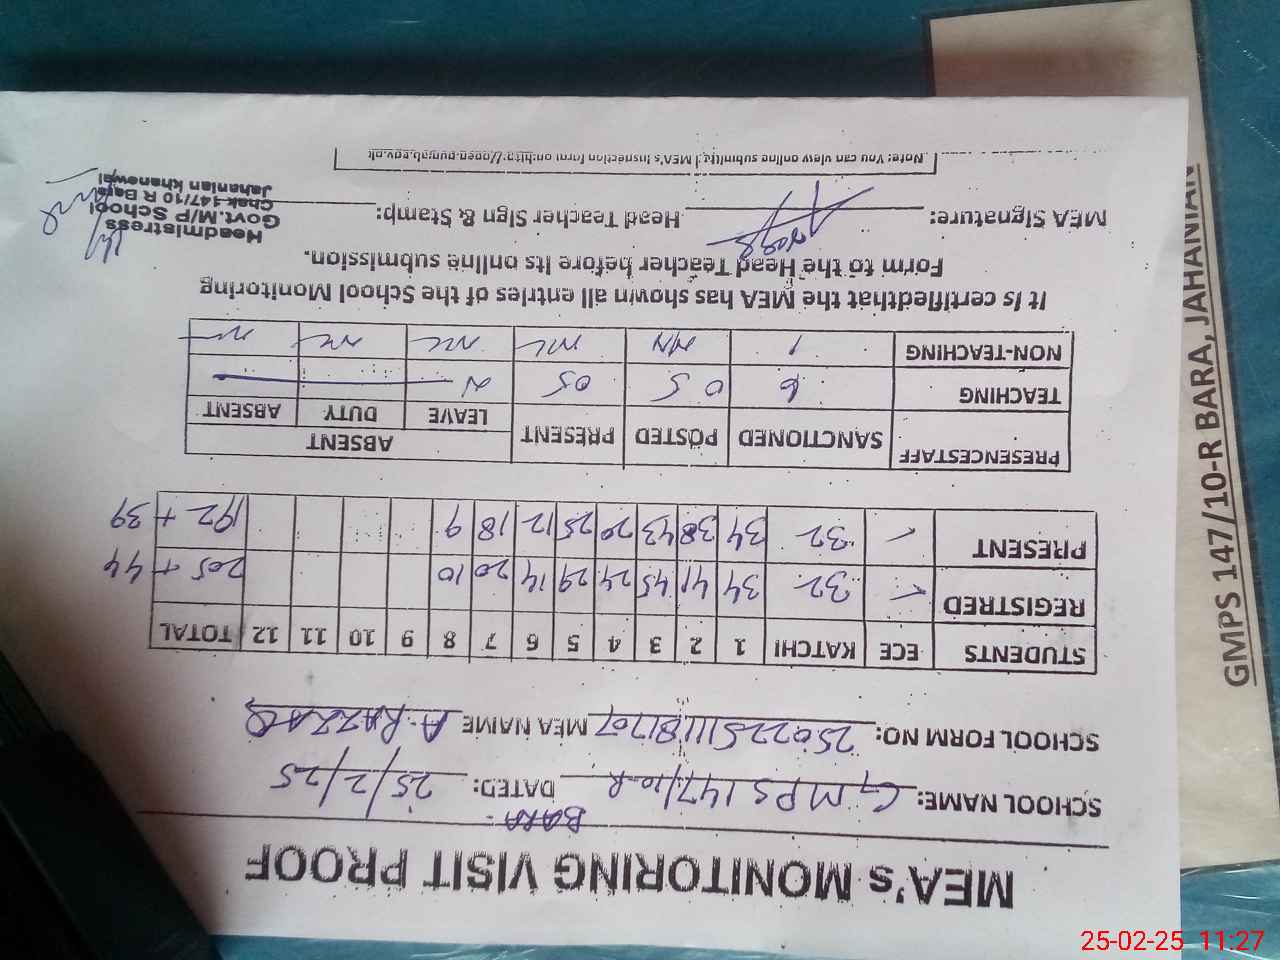 MEA's MONITORING VISIT PROOF
SCHOOL NAME: GMPS 147/10-R BARA - DATED: 25/2/25
SCHOOL FORM NO: MEA NAME A. RAZZAQ
STUDENTS ECE KATCHI 1 2 3 4 5 6 7 8 9 10 11 12 TOTAL
REGISTRED 32 34 41 45 24 29 14 20 10 205 + 44
PRESENT 32 34 38 43 20 25 12 18 9 192 + 39
PRESENCESTAFF SANCTIONED POSTED PRESENT ABSENT
LEAVE DUTY ABSENT
TEACHING 6 05 05
NON-TEACHING 1
It is certifiedthat the MEA has shown all entries of the School Monitoring
Form to the Head Teacher before its online submission.
MEA Signature: Head Teacher Sign & Stamp:
Headmistress
Govt.M/P School
Chak 147/10 R Bara
Jahanian khanewal
Note: You can view online submitted MEA's inspection form on:http://open.punjab.gov.pk
GMPS 147/10-R BARA, JAHANIAN
25-02-25 11:27